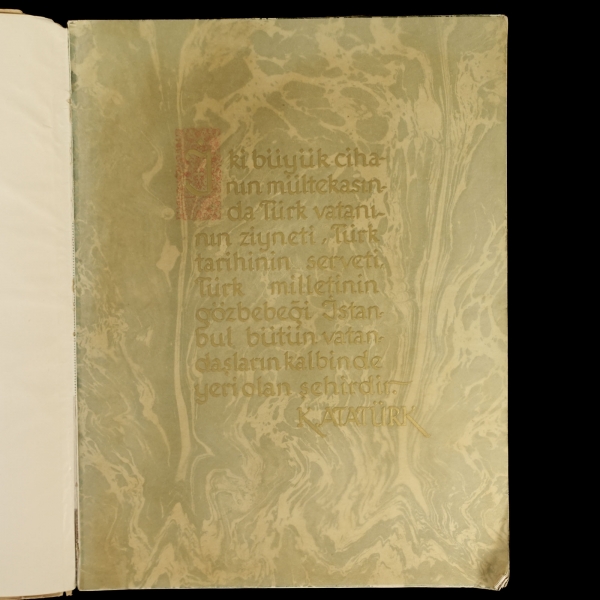 İki büyük ciha-
nın mültekasın-
da Türk vatanı-
nın ziyneti, Türk
tarihinin serveti,
Türk milletinin
gözbebeği İstan-
bul bütün vatan-
daşların kalbinde
yeri olan şehirdir.
K. ATATÜRK